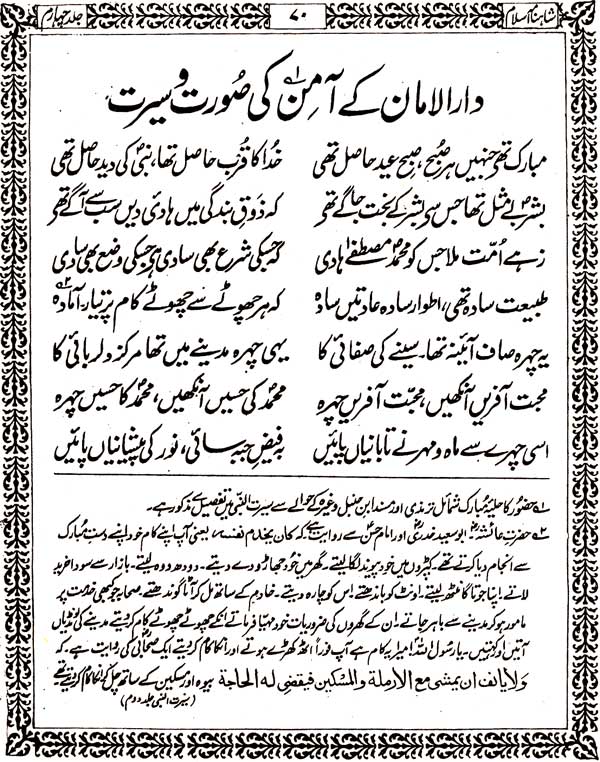 شاہنامۂ اسلام
۷۰
جلد چہارم
دارالامان کے آمِن کی صُورت و سیرت
مبارک تھی جنہیں ہر صُبح، صبحِ عید حاصل تھی
خُدا کا قُرب حاصل تھا، نبیؐ کی دید حاصل تھی
بشرؐ بے مثل تھا جس سے بشر کے بخت جاگے تھے
کہ ذوقِ بندگی میں ہادیؐ دیں سب سے آگے تھے
زہے اُمّت ملا جس کو محمدؐ مصطفےٰؐ ہادی
کہ جسکی شرع بھی سادی ہے جسکی وضع بھی سادی
طبیعت سادہ تھی، اطوار سادہ عادتیں سادہ
کہ ہر چھوٹے سے چھوٹے کام پر تیار۔ آمادہ
یہ چہرہ صاف آئینہ تھا۔ سینے کی صفائی کا
یہی چہرہ مدینے میں تھا مرکز دلربائی کا
محبت آفریں آنکھیں، محبّت آفریں چہرہ
محمدؐ کی حسیں آنکھیں، محمدؐ کا حسیں چہرہ
اسی چہرے سے ماہ و مہر نے تابانیاں پائیں
بہ فیضِ جبہ سائی، نور کی پیشانیاں پائیں
۱؎ حضورؐ کا حلیۂ مُبارک شمائل ترمذی اور مسند ابن حنبل وغیرہ کے حوالے سے سیرت النبیؐ میں تفصیل سے مذکور ہے۔
۲؎ حضرت عائشہؓ ابو سعید خدریؓ اور امام حسنؓ سے روایت ہے کہ کان یخدم نفسہ، یعنی آپ اپنے کام خود اپنے دستِ مبارک
سے انجام دیا کرتے تھے۔ کپڑوں میں خود پیوند لگا لیتے۔ گھر میں خود جھاڑو دے دیتے۔ دودھ دوہ لیتے۔ بازار سے سودا خرید
لاتے۔ اپنا جوتا گانٹھ لیتے۔ اونٹ کو باندھتے۔ اس کو چارہ دیتے۔ خادم کے ساتھ مل کر آٹا گوندھتے۔ صحابہ جو کبھی خدمت پر
مامور ہو کر مدینے سے باہر جاتے۔ اُن کے گھروں کی ضروریات خود مہیّا فرماتے انکے چھوٹے چھوٹے کام کر دیتے مدینے کی لونڈیاں
آتیں اور کہتیں۔ یا رسُول اللہؐ! میرا یہ کام ہے آپ فوراً اُٹھ کھڑے ہوتے اور انکا کام کر دیتے ایک صحابیؓ کی روایت ہے۔ کہ
ولا یانف ان یمشی مع الارملة والمسکین فیقضی له الحاجة بیوہ اور مسکین کے ساتھ چل کر انکا کام کر دیتے تھے
(سیرت النبی جلد دوم)